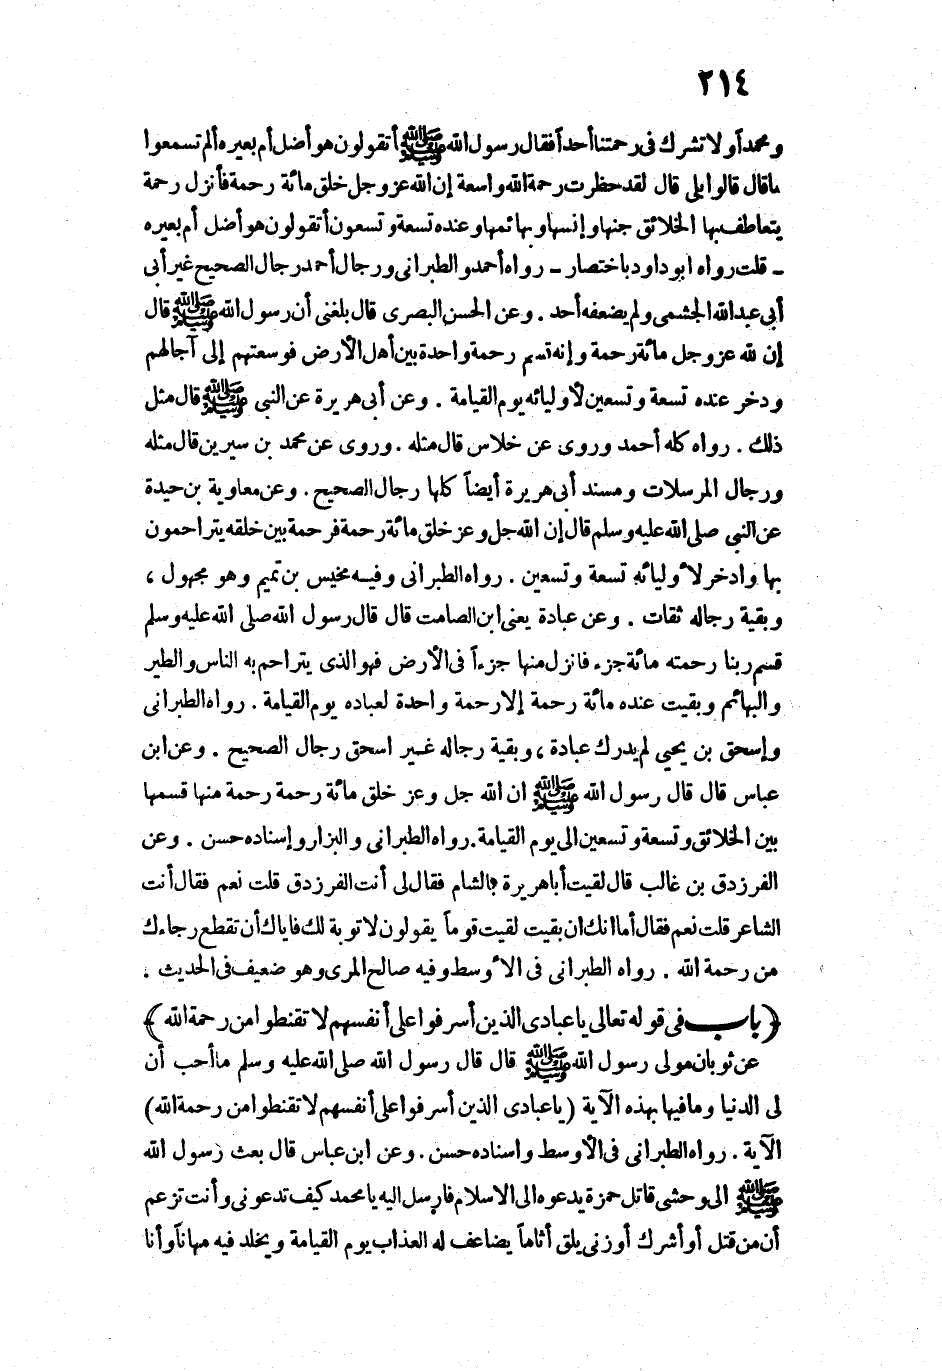 ٢١٤
ومحمداً ولا تشرك فى رحمتنا أحداً فقال رسول الله ﷺ أتقولون هو أضل أم بعيره ألم تسمعوا
ماقال قالوا بلى قال لقد حظرت رحمة الله واسعة إن الله عز وجل خلق مائة رحمة فأنزل رحمة
يتعاطف بها الخلائق جنها وإنسها وبهائمها وعنده تسعة وتسعون أتقولون هو أضل أم بعيره
ـ قلت رواه ابو داود باختصار ـ رواه أحمد والطبرانى ورجال أحمد رجال الصحيح غير أبى
أبى عبد الله الجشمى ولم يضعفه أحد . وعن الحسن البصرى قال بلغنى أن رسول الله ﷺ قال
إن لله عز وجل مائة رحمة وإنه قسم رحمة واحدة بين أهل الأرض فوسعتهم إلى آجالهم
ودخر عنده تسعة وتسعين لأوليائه يوم القيامة . وعن أبى هريرة عن النبى ﷺ قال مثل
ذلك . رواه كله أحمد وروى عن خلاس قال مثله . وروى عن محمد بن سيرين قال مثله
ورجال المرسلات ومسند أبى هريرة أيضاً كلها رجال الصحيح . وعن معاوية بن حيدة
عن النبى صلى الله عليه وسلم قال إن الله جل وعز خلق مائة رحمة فرحمة بين خلقه يتراحمون
بها وادخر لأوليائه تسعة وتسعين . رواه الطبرانى وفيه مخيس بن تميم وهو مجهول ،
وبقية رجاله ثقات . وعن عبادة يعنى ابن الصامت قال قال رسول الله صلى الله عليه وسلم
قسم ربنا رحمته مائة جزء فانزل منها جزءاً فى الأرض فهو الذى يتراحم به الناس والطير
والبهائم وبقيت عنده مائة رحمة إلا رحمة واحدة لعباده يوم القيامة . رواه الطبرانى
وإسحق بن يحيى لم يدرك عبادة ، وبقية رجاله غير اسحق رجال الصحيح . وعن ابن
عباس قال قال رسول الله ﷺ ان الله جل وعز خلق مائة رحمة رحمة منها قسمها
بين الخلائق وتسعة وتسعين الى يوم القيامة. رواه الطبرانى والبزار وإسناده حسن . وعن
الفرزدق بن غالب قال لقيت أبا هريرة بالشام فقال لى أنت الفرزدق قلت نعم فقال أنت
الشاعر قلت نعم فقال أما انك ان بقيت لقيت قوماً يقولون لا توبة لك فاياك أن تقطع رجاءك
من رحمة الله . رواه الطبرانى فى الأوسط وفيه صالح المرى وهو ضعيف فى الحديث .
﴿باب فى قوله تعالى ياعبادى الذين أسرفوا على أنفسهم لا تقنطوا من رحمة الله﴾
عن ثوبان مولى رسول الله ﷺ قال قال رسول الله صلى الله عليه وسلم ما أحب أن
لى الدنيا وما فيها بهذه الآية (ياعبادى الذين أسرفوا على أنفسهم لا تقنطوا من رحمة الله)
الآية . رواه الطبرانى فى الأوسط واسناده حسن . وعن ابن عباس قال بعث رسول الله
ﷺ الى وحشى قاتل حمزة يدعوه الى الاسلام فارسل اليه يا محمد كيف تدعونى وأنت تزعم
أن من قتل أو أشرك أو زنى يلق أثاماً يضاعف له العذاب يوم القيامة ويخلد فيه مهاناً وأنا